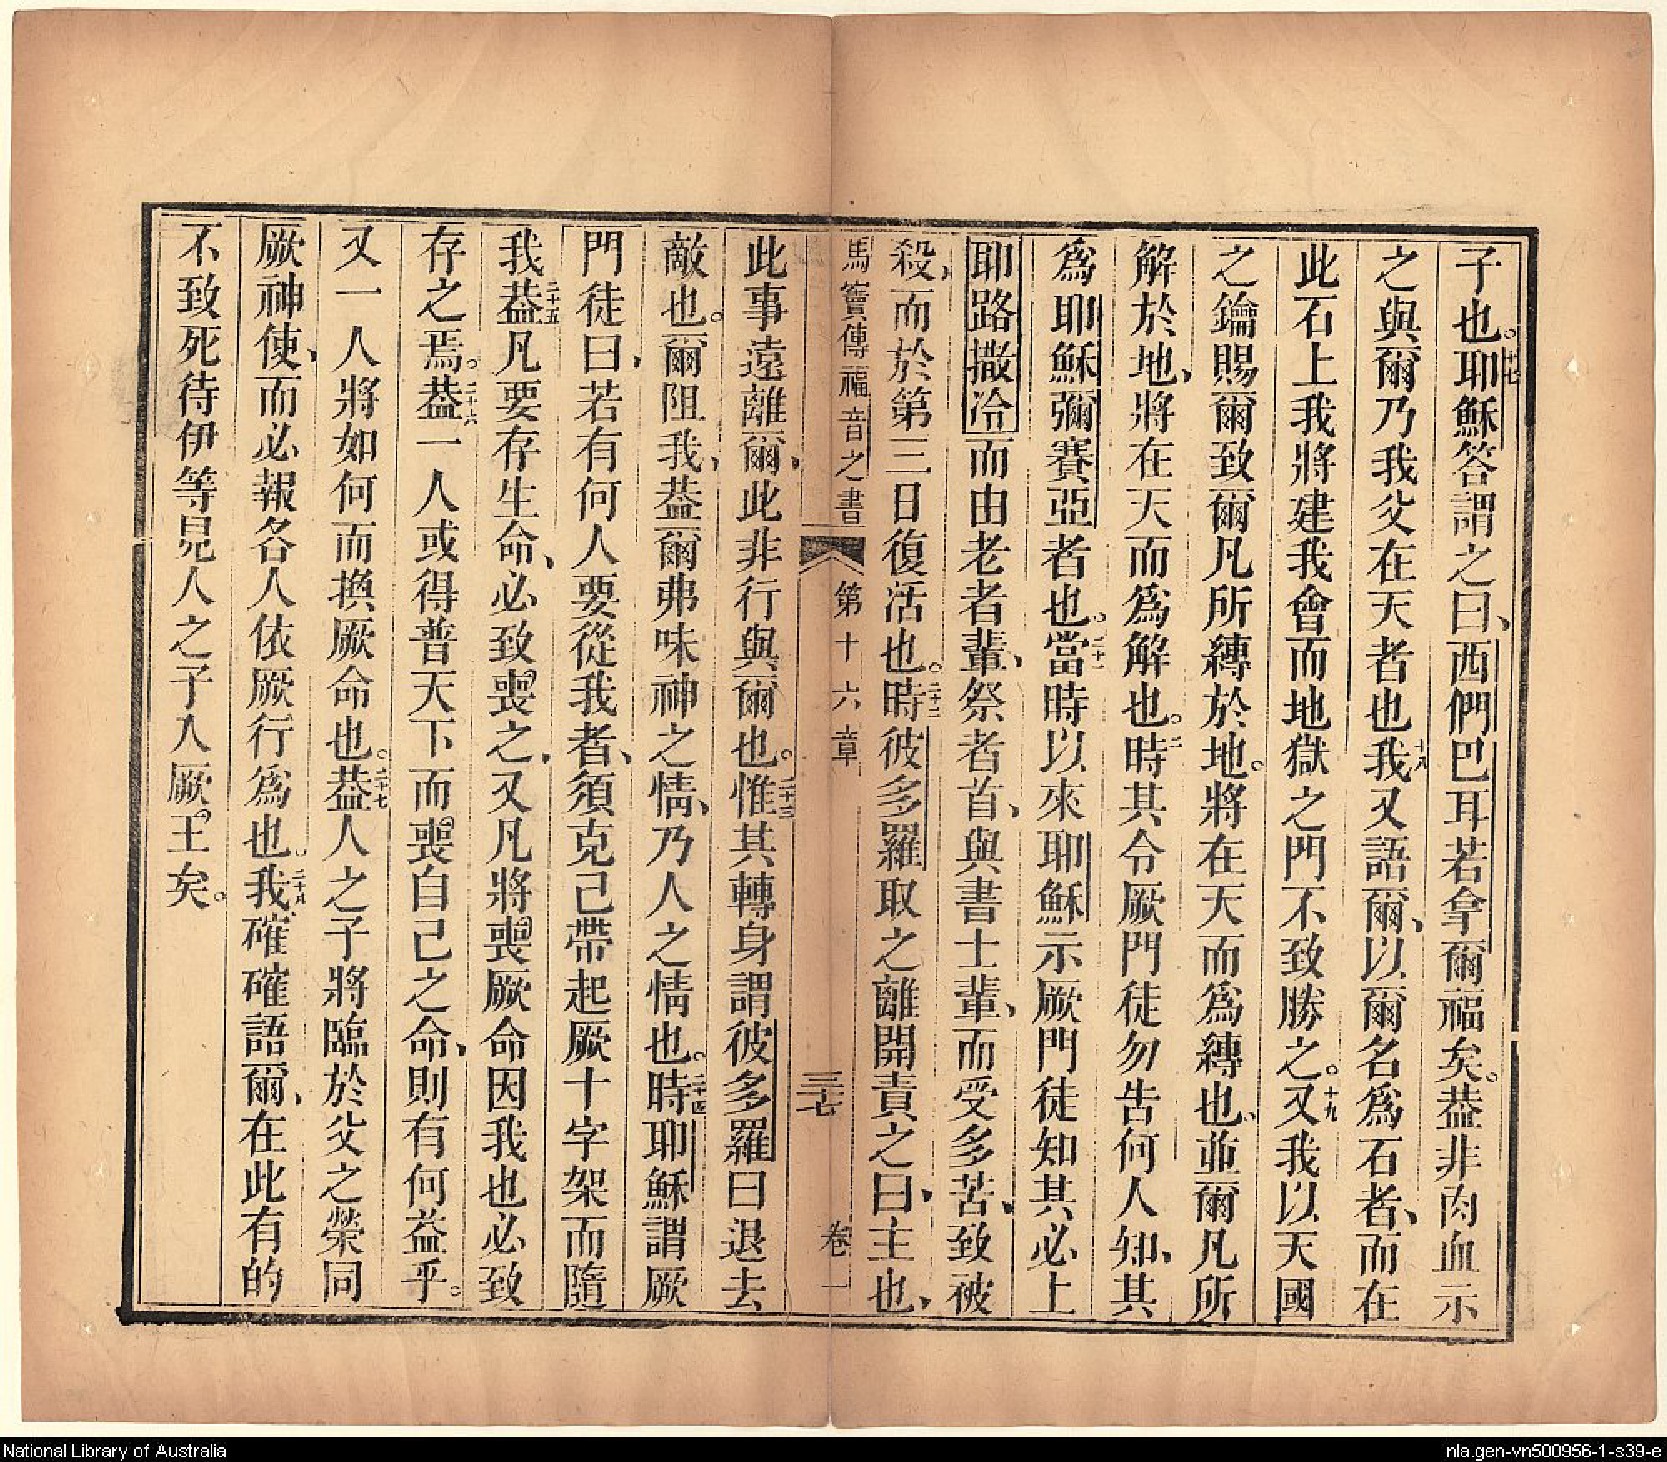 子也。十七耶穌答謂之曰、西們巴耳若拿爾福矣。葢非肉血示
之與爾乃我父在天者也十八我又語爾、以爾名為石者、而在
此石上我將建我會而地獄之門不致勝之。十九又我以天國
之鑰賜爾致爾凡所縛於地。將在天而為縛也、並爾凡所
解於地、將在天而為解也。二十時其令厥門徒勿告何人知、其
為耶穌彌賽亞者也。二十一當時以來耶穌示厥門徒知其必上
耶路撒冷而由老者輩、祭者首、與書士輩、而受多苦、致被
殺、而於第三日復活也。二十二時彼多羅取之離開責之曰、主也、
馬竇傳福音之書 第十六章 三十七 卷一
此事遠離爾、此非行與爾也。二十三惟其轉身謂彼多羅曰退去
敵也。爾阻我、葢爾弗味神之情、乃人之情也。二十四時耶穌謂厥
門徒曰、若有何人要從我者、須克己帶起厥十字架而隨
我二十五葢凡要存生命、必致喪之、又凡將喪厥命因我也必致
存之焉。二十六葢一人或得普天下而喪自己之命、則有何益乎。
又一人將如何而換厥命也。二十七葢人之子將臨於父之榮同
厥神使、而必報各人依厥行為也。二十八我確確語爾、在此有的
不致死待伊等見人之子入厥王矣。